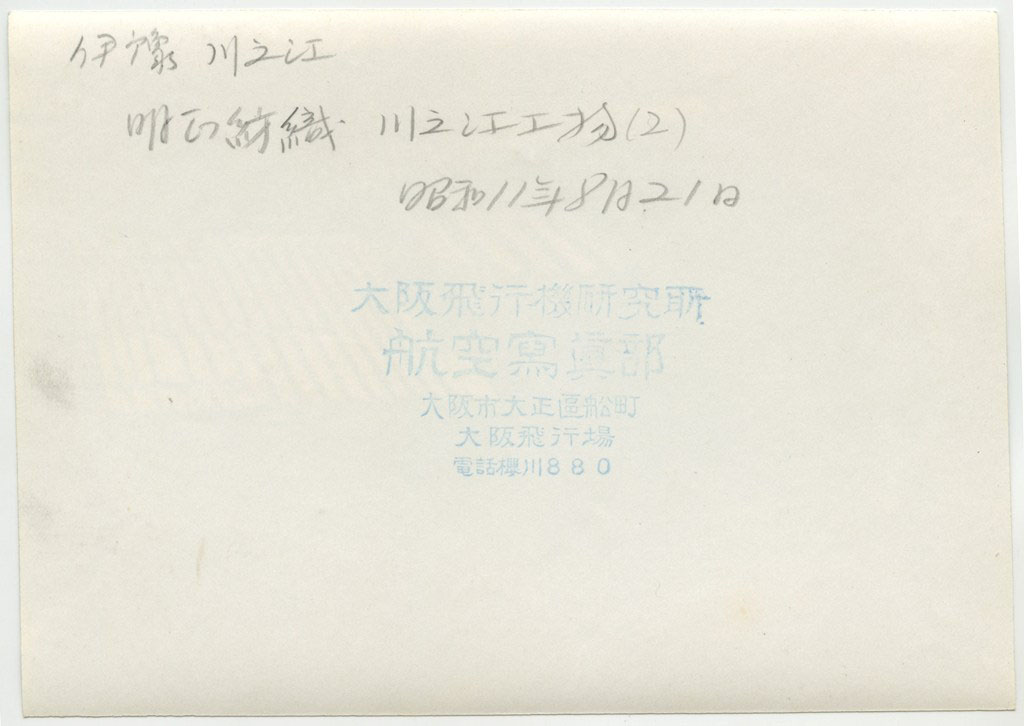 伊豫 川之江
明正紡織 川之江工場(2)
昭和11年8月21日
大阪飛行機研究所
航空寫眞部
大阪市大正區船町
大阪飛行場
電話櫻川880